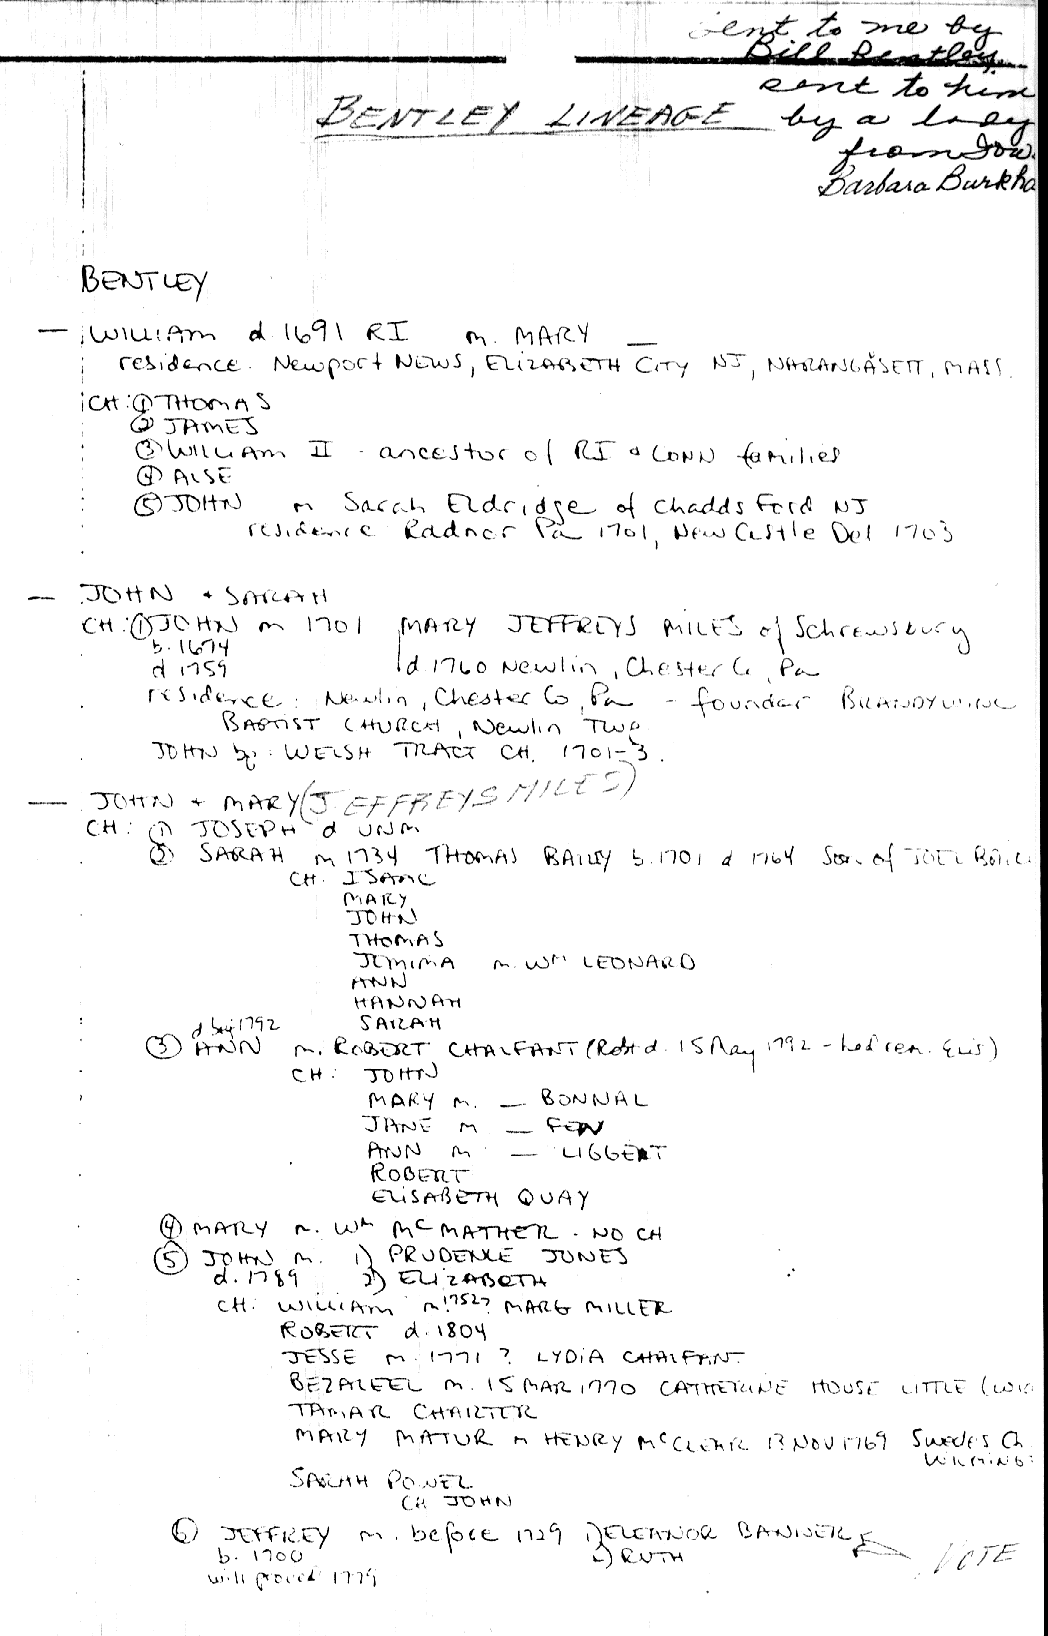 sent to me by
Bill Bentley
sent to him
BENTLEY LINEAGE by a lady
from
Barbara Burkho
BENTLEY
— WILLIAM d. 1691 RI m. MARY —
residence. Newport NEWS, ELIZABETH CITY NJ, NARANGÅSETT, MASS.
CH: ① THOMAS
② JAMES
③ WILLIAM II - ancestor of RI & CONN families
④ ALSE
⑤ JOHN m Sarah Eldridge of Chadds Ford NJ
residence Radnor Pa 1701, New Castle Del 1703
— JOHN + SARAH
CH: ① JOHN m 1701 MARY JEFFREYS MILES of Schrewsbury
b. 1674
d 1759 d. 1760 Newlin, Chester Co, Pa
residence: Newlin, Chester Co, Pa - founder BRANDYWINE
BAPTIST CHURCH, Newlin TWP
JOHN bp. WELSH TRACT CH. 1701-3.
— JOHN + MARY (JEFFREYS MILES)
CH: ① JOSEPH d UNM
② SARAH m 1734 THOMAS BAILY b. 1701 d 1764 Son of JOEL
CH. ISAAC
MARY
JOHN
THOMAS
JEMIMA m. Wm LEONARD
ANN
HANNAH
SARAH
d 1792
③ ANN m. ROBERT CHALFANT (Robt d. 15 May 1792 - had rem. Elis)
CH: JOHN
MARY m. — BONNAL
JANE m —
ANN m — LIGGETT
ROBERT
ELISABETH QUAY
④ MARY m. Wm McMATHER - NO CH
⑤ JOHN m. 1) PRUDENCE JONES
d. 1789 2) ELIZABETH
CH: WILLIAM m. 1752? MARG MILLER
ROBERT d. 1804
JESSE m. 1771 ? LYDIA CHALFANT
BEZALEEL m. 15 MAR 1770 CATHERINE HOUSE LITTLE
TAMAR CHARTER
MARY MATUR m HENRY McCLEAR 13 NOV 1769 SWEDES Ch
WILMING
SARAH POWEL
CH JOHN
⑥ JEFFREY m. before 1729 1) ELEANOR BANNER
b. 1700 2) RUTH NOTE
will proved 1779